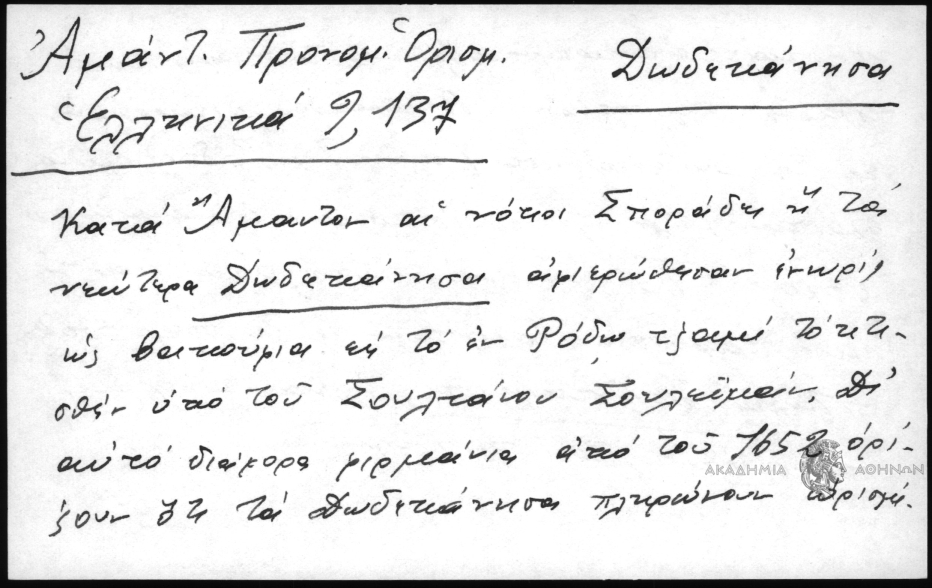 Ἀμάντ. Προνομ. Ὁρισμ.
Δωδεκάνησα
Ἑλληνικά 9, 137
Κατά Ἄμαντον αἱ νότιοι Σποράδες ἤ τά
νεώτερα Δωδεκάνησα ἀφιερώθησαν ἐνωρίς
ὡς βακούφια εἰς τό ἐν Ρόδῳ τζαμί τό κτι-
σθέν ὑπό τοῦ Σουλτάνου Σουλεϊμάν. Δι'
αὐτό διάφορα φιρμάνια ἀπό τοῦ 1652 ὁρί-
ζουν ὅτι τά Δωδεκάνησα πληρώνουν ὡρισμέ-
ΑΚΑΔΗΜΙΑ ΑΘΗΝΩΝ